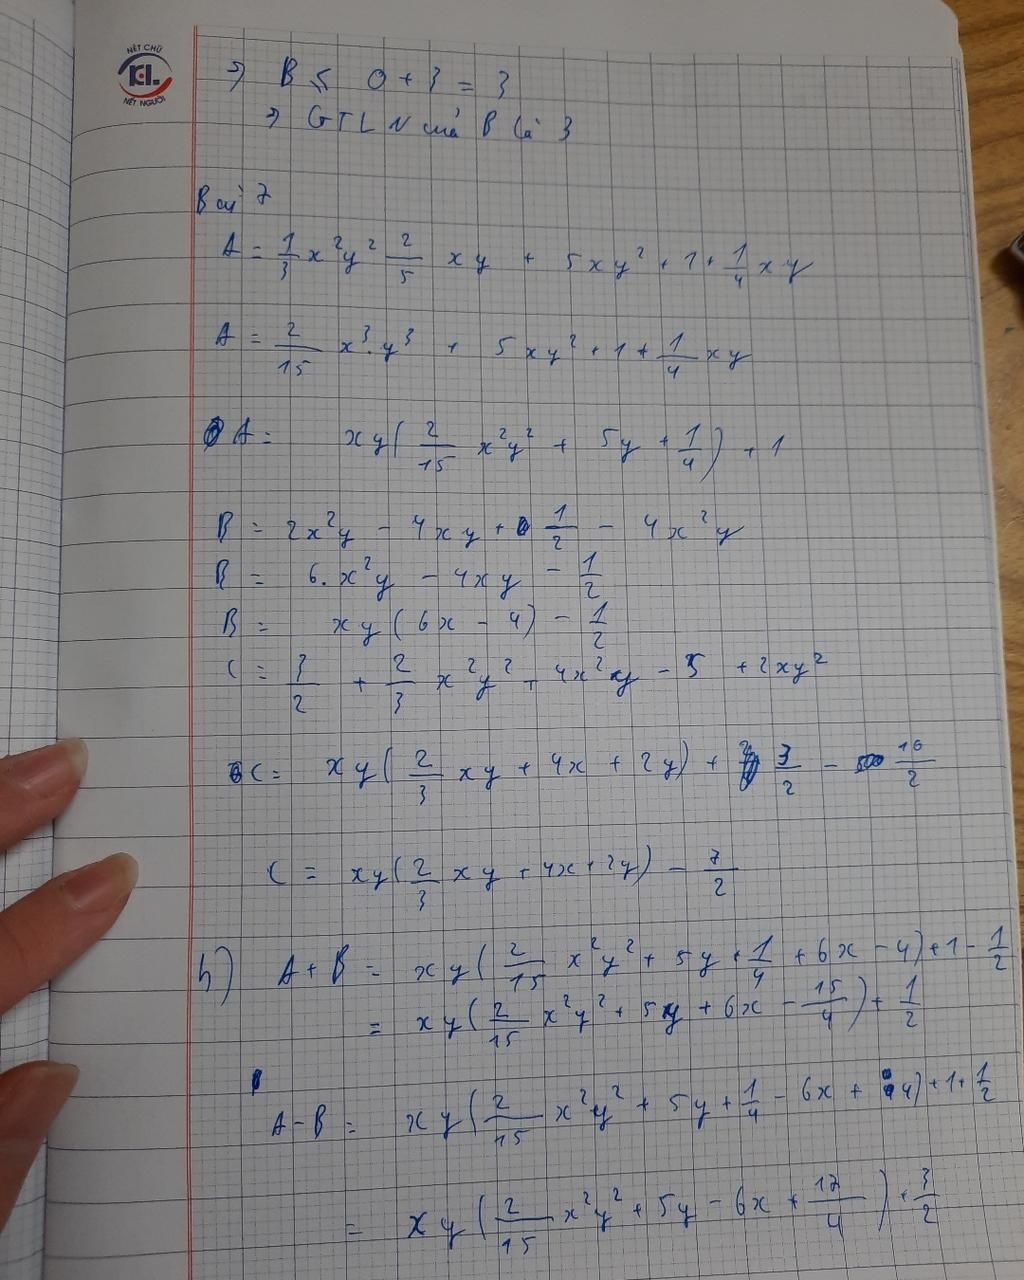 NÉT CHỮ
KL
NẾT NGƯỜI
=> B ≤ 0 + 3 = 3
=> GTLN của B là 3
Bài 7
A = 1/3 x²y² 2/5 xy + 5xy² + 1 + 1/4 xy
A = 2/15 x³.y³ + 5xy² + 1 + 1/4 xy
A = xy(2/15 x²y² + 5y + 1/4) + 1
B = 2x²y - 4xy + 1/2 - 4x²y
B = 6.x²y - 4xy - 1/2
B = xy(6x - 4) - 1/2
C = 3/2 + 2/3 x²y² + 4x²y - 5 + 2xy²
C = xy(2/3 xy + 4x + 2y) + 3/2 - 10/2
C = xy(2/3 xy + 4x + 2y) - 7/2
b) A + B = xy(2/15 x²y² + 5y + 1/4 + 6x - 4) + 1 - 1/2
= xy(2/15 x²y² + 5y + 6x - 15/4) + 1/2
A - B = xy(2/15 x²y² + 5y + 1/4 - 6x + 4) + 1 + 1/2
= xy(2/15 x²y² + 5y - 6x + 17/4) + 3/2